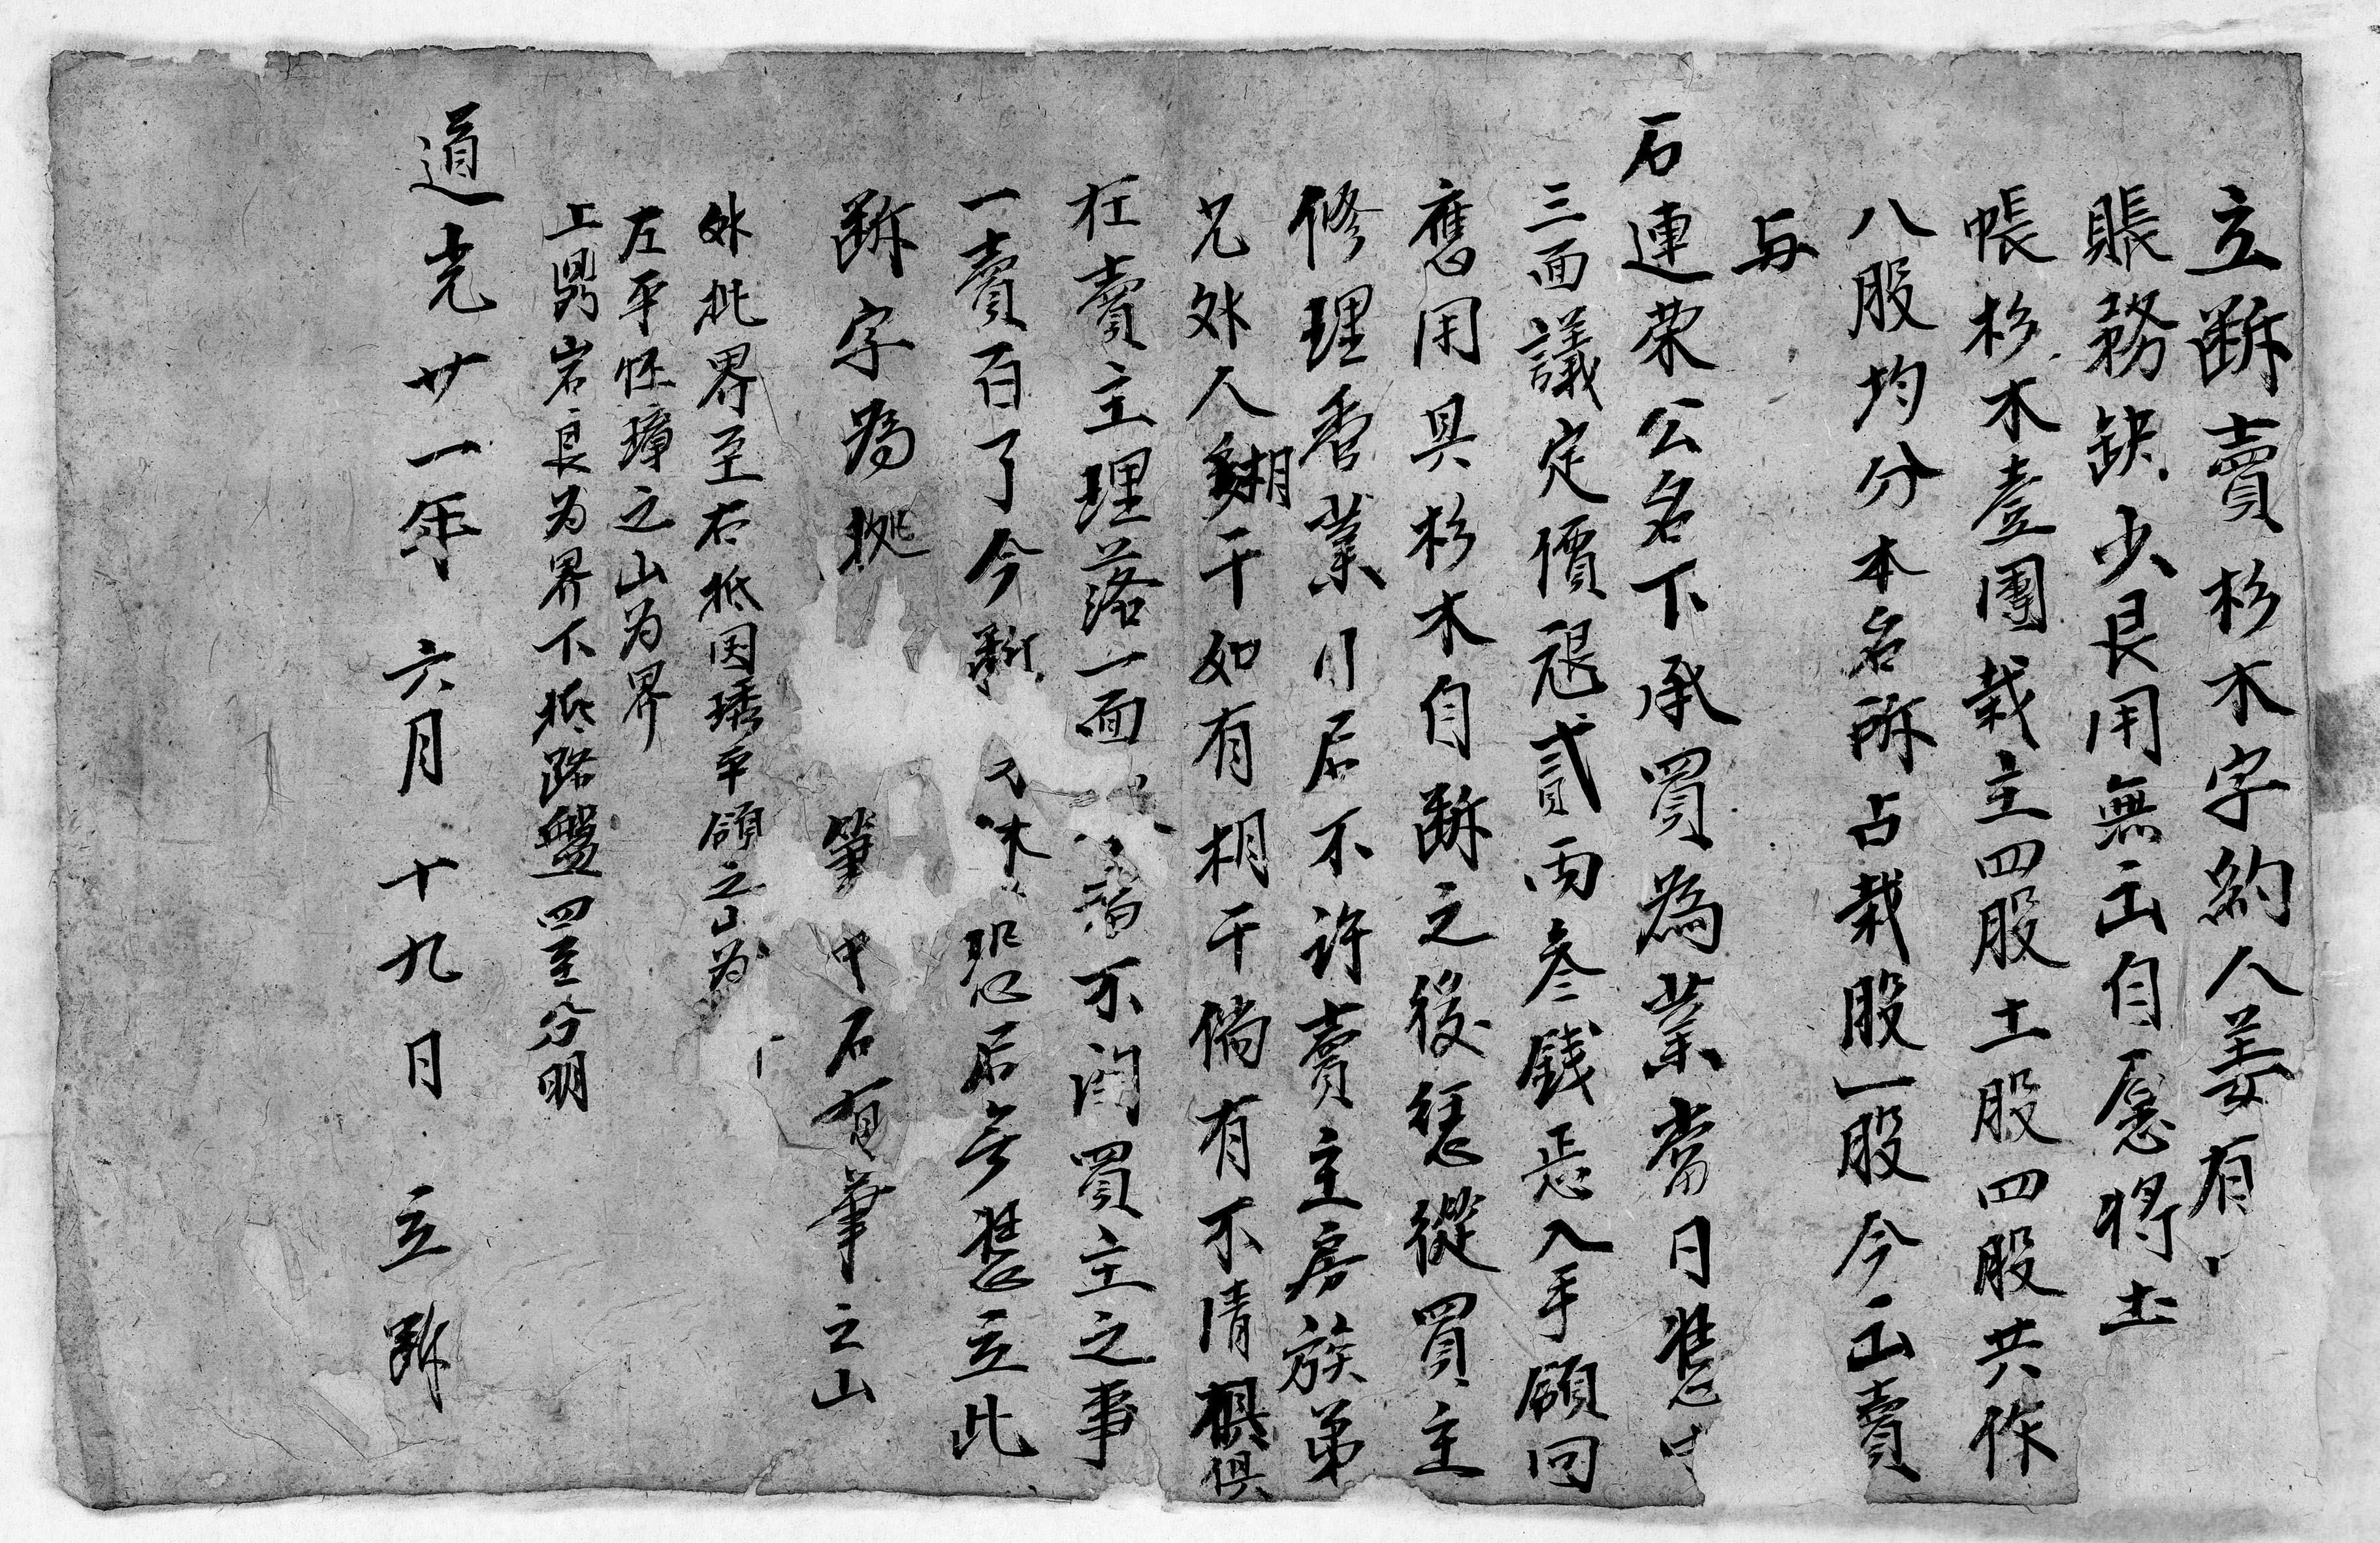 立断賣杉木字約人姜有
賬務缺少艮用無出自愿將土
帳杉木壹團栽主四股土股四股共作
八股均分本名所占栽股一股今出賣
与
石連荣公名下承買為業當日凴中
三面議定價艮貳両叁錢㤙入手領回
應用具杉木自断之後恁從買主
修理管業日后不許賣主房族弟
兄外人糊干如有相干倘有不清俱
在賣主理落一面不関買主之事
一賣百了今木恐后無凴立此
断字為㨿
筆中石有筆之山
外批界至右抵因琇平領之山为
左平怌璋之山为界
上鼎岩良为界下抵路盤四至分明
道光廿一年六月十九日立断